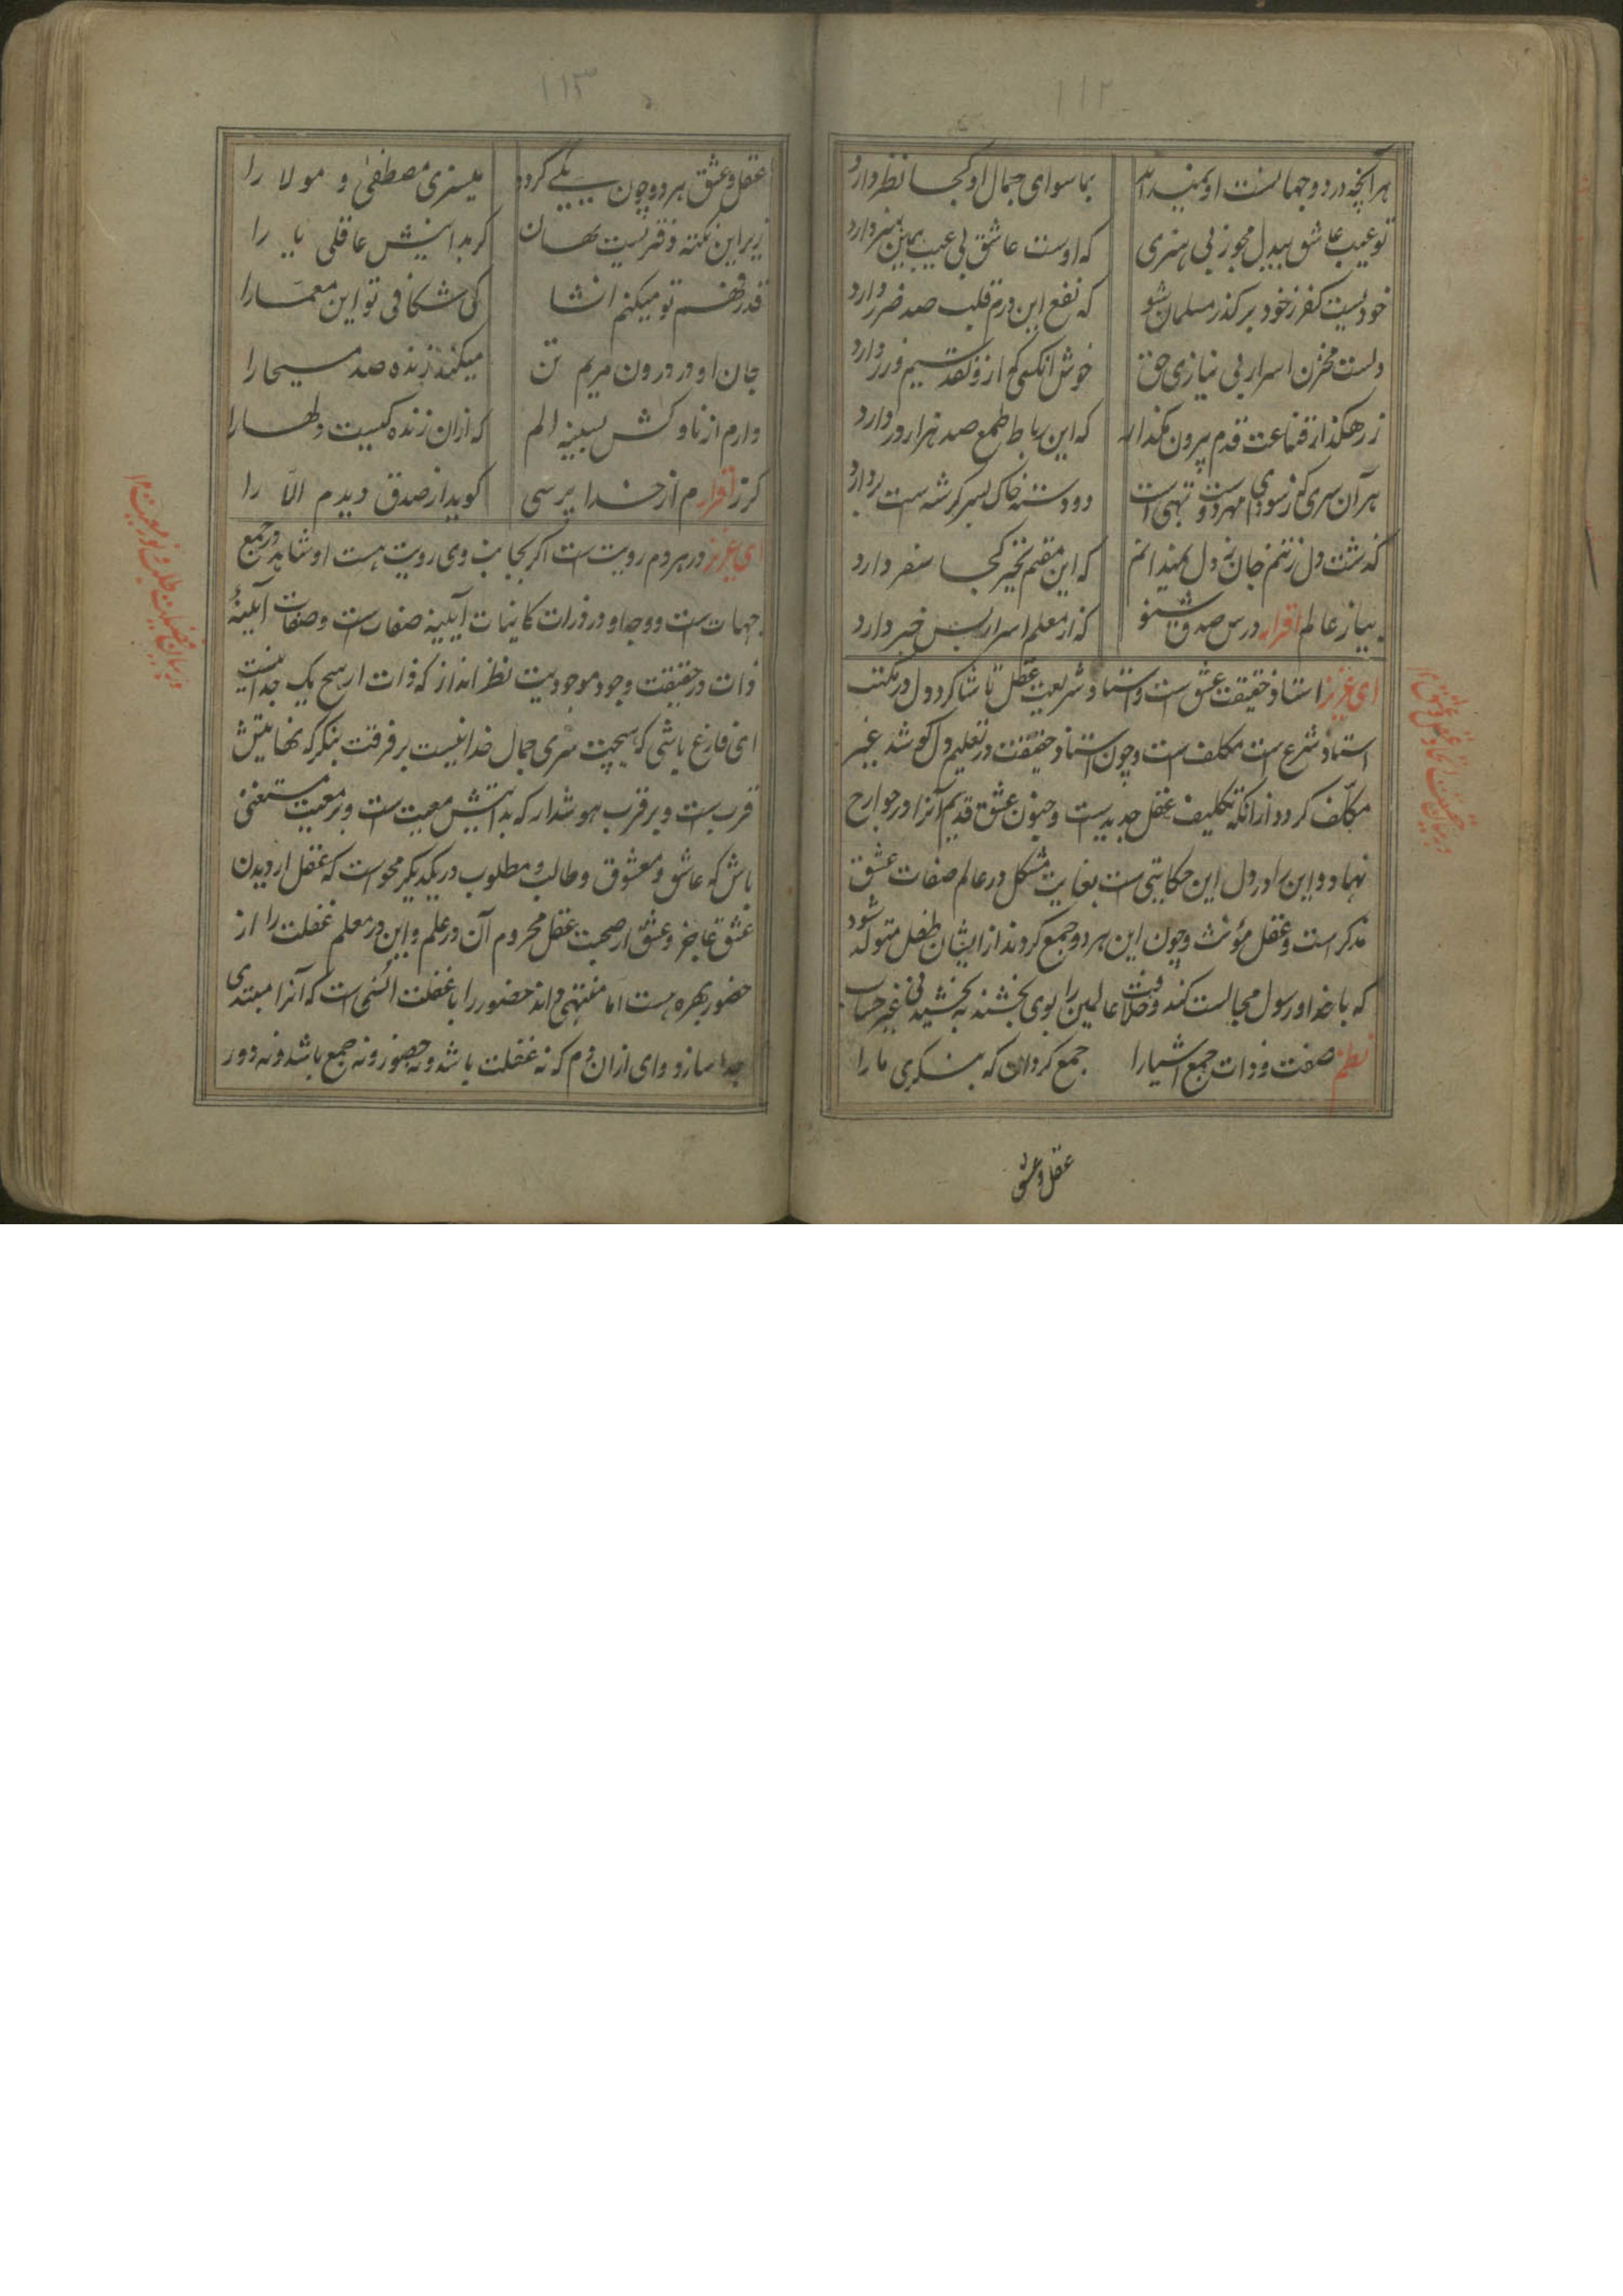 ۱۱۲
هر آنچه در دو جهانست او نمیداند بماسوای جمال او کجا نظر دارد
تو عیب عاشق بیدل مجو ز بی هنری که اوست عاشق بی عیب همین هنر دارد
خودیست کفر ز خود برگذر مسلمان شو که نفع این درم قلب صد ضرر دارد
دلست مخزن اسرار بی نیازی حق خوش آنکسی که ازو نقد سیم و زر دارد
ز رهگذار قناعت قدم برون مگذار که این رباط طمع صد هزار در دارد
هر آن سری که ز سودای مهر دوست تهی است دو دسته خاک بسر کرشه ست بردارد
گذشت دل ز تنم جان ز دل نمیدانم که این مقیم تحیر کجا سفر دارد
بیا ز عالم اقرار درس صدق شنو که از معلم اسرار بس خبر دارد
ای عزیز استاد حقیقت عشق است و استاد شریعت عقل تا شاگرد دل در مکتب
استاد شرع است مکلف است و چون استاد حقیقت در تعلیم دل کوشد غیر
مکلف گردد از انکه تکلیف عقل جدیدست و جنون عشق قدیم آنرا در جوارح
نهاد و این را در دل این حکایتی ست بغایت مشکل در عالم صفات عشق
مذکر است و عقل مؤنث و چون این هر دو جمع گردند از ایشان طفل متولد شود
که با خدا و رسول مجالست کند و خلافت عالمین را بوی بخشند بخشیدنی غیر حساب
نظم صفت و ذات جمع اشیارا جمع گردان که بنگری ما را
عقل و عشق
در بیان حقیقت اتحاد عقل و عشق
۱۱۳
عقل و عشق هر دو چون یکی گردد میسزی مصطفی و مولا را
زیر این نکته دفتریست نهان گر بدانیش عاقلی یا را
قدر فهم تو میکنم انشا کی شکافی تو این معما را
جان او در درون مریم تن میکند زنده صد مسیحا را
دارم از ناوکش بسینه الم که ازان زنده کیست دلها را
گر ز اقرارم از خدا پرسی گوید از صدق دیدم الّا را
ای عزیز در هر دم رویت ست اگر بجانب وی رویت هست او شاهد در جمیع
جهات ست و وجه او در ذرات کاینات آیینه صفات ست و صفات آیینهٔ
ذات در حقیقت وجود موجودیت نظر انداز که ذات از هیچ یک جدا نیست
ای فارغ باشی که هیچت سری جمال خدا نیست بر فرقت بنگر که نهایتش
قرب ست و بر قرب هوشدار که بدایتش معیت ست و بر معیت مستغنی
باش که عاشق و معشوق و طالب و مطلوب در یکدیگر محو است که عقل از دیدن
عشق عاجز و عشق از صحبت عقل محروم آن در علم و این در معلم غفلت را از
حضور بهره هست اما منتهی داند حضور را با غفلت انسی است که آنرا مبتدی
جدا سازد وای ازان دم که نه غفلت باشد و نه حضور و نه جمع باشد و نه دور